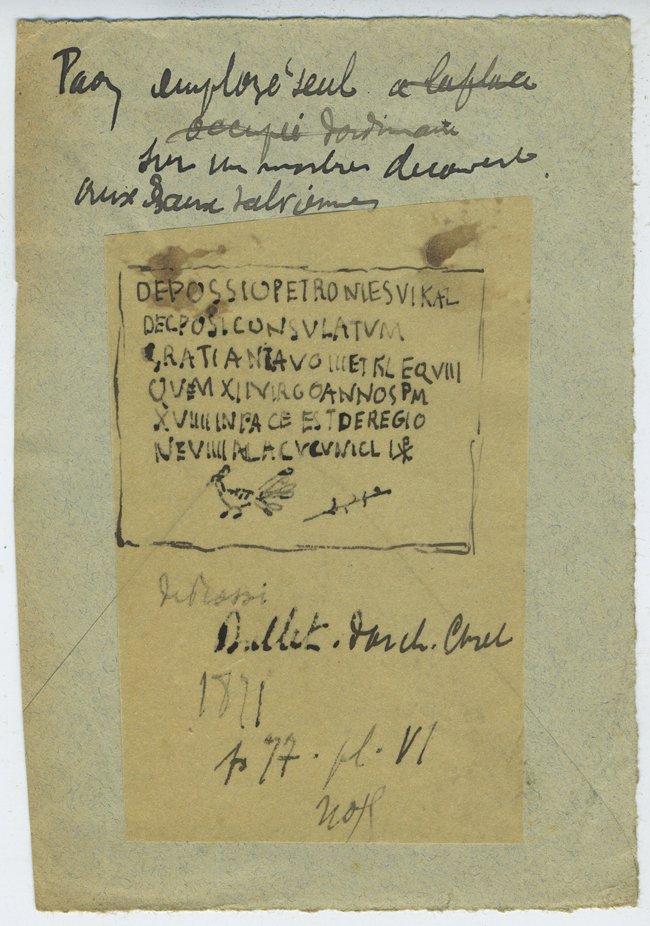 Paon employé seul a la place
occupée d'ordinaire
sur un marbre decouvert.
aux Eaux Salviennes
DEPOSSIOPETRONIESVIKAL
DECPOSICONSVLATVM
GRATIANIAVGIIIETFLEQVIII
QVEMXITVIRGOANNOSPM
XVIIIIINPACE ESTDEREGIO
NEVIIIIALACVCVNICLI ⳨
de Rossi
Bullet. d'arch. Chret
1871
p 77. pl. VI